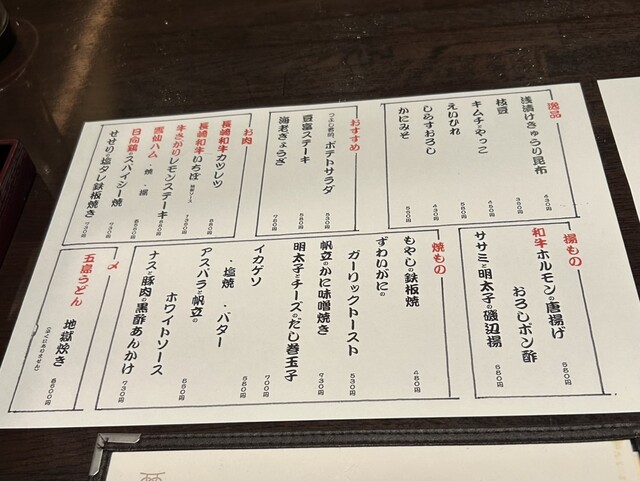 逸品
浅漬けきゅうり昆布
430円
枝豆
380円
キムチとやっこ
450円
えいひれ
480円
しらすおろし
430円
かにみそ
500円
おすすめ
つよし君的、ポテトサラダ
530円
豆富ステーキ
580円
海老ぎょうざ
780円
お肉
長崎和牛カツレツ
長崎和牛いちぼ
牛さがりレモンステーキ
雲仙ハム ・焼 ・揚
日向鶏のスパイシー焼
730円
せせりの塩タレ鉄板焼き
730円
揚もの
和牛ホルモンの唐揚げ
おろしポン酢
580円
ササミと明太子の磯辺揚
580円
焼もの
もやしの鉄板焼
480円
ずわいがにの
ガーリックトースト
530円
帆立のかに味噌焼き
730円
明太子とチーズのだし巻玉子
700円
イカゲソ
・塩焼 ・バター
580円
アスパラと帆立の
ホワイトソース
880円
ナスと豚肉の黒酢あんかけ
730円
〆
五島うどん
地獄炊き
(辛くはありません)